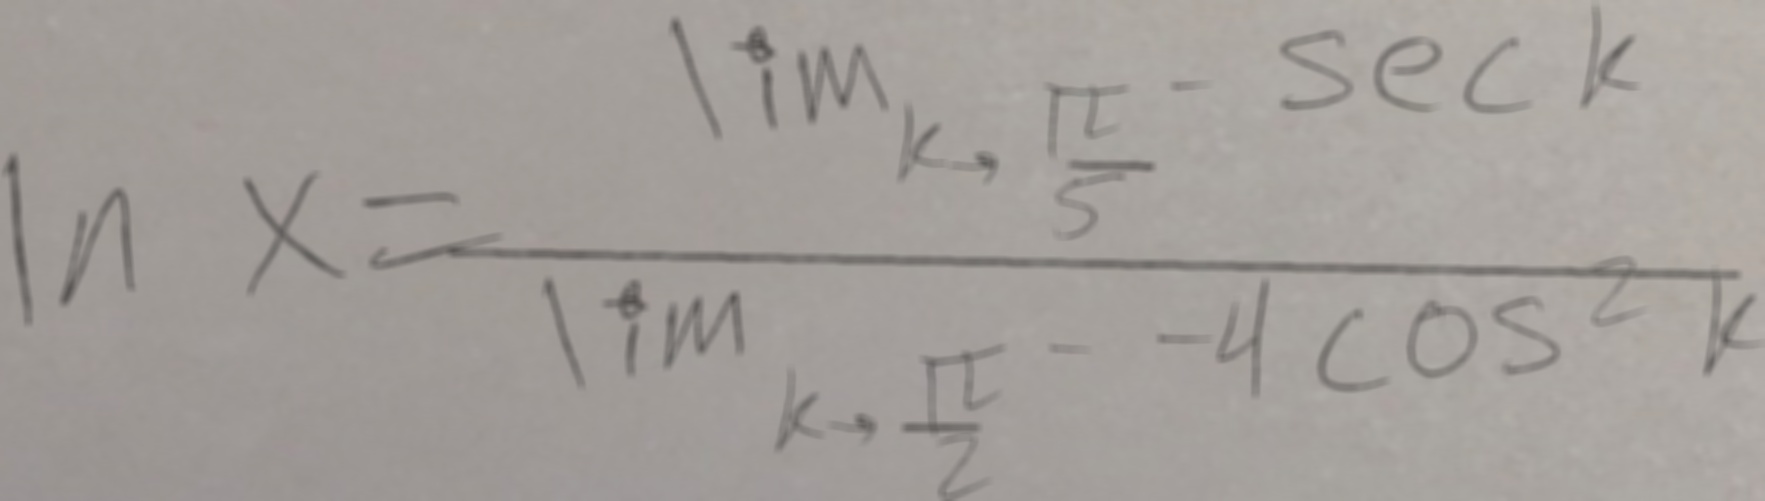 \ln x = \frac{\lim_{k \to \frac{\pi}{5}^-} \sec k}{\lim_{k \to \frac{\pi}{2}^-} -4 \cos^2 k}